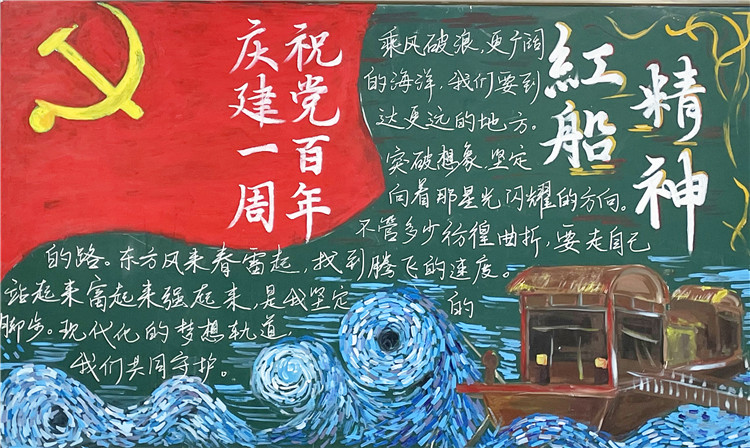 庆祝
建党
一百
周年
紅船
精神
乘风破浪,更广阔
的海洋,我们要到
达更远的地方。
突破想象,坚定
向着那星光闪耀的方向。
不管多少彷徨曲折,要走自己
的路。东方风来春雷起,找到腾飞的速度。
站起来富起来强起来,是我坚定 的
脚步。现代化的梦想轨道,
我们共同守护。